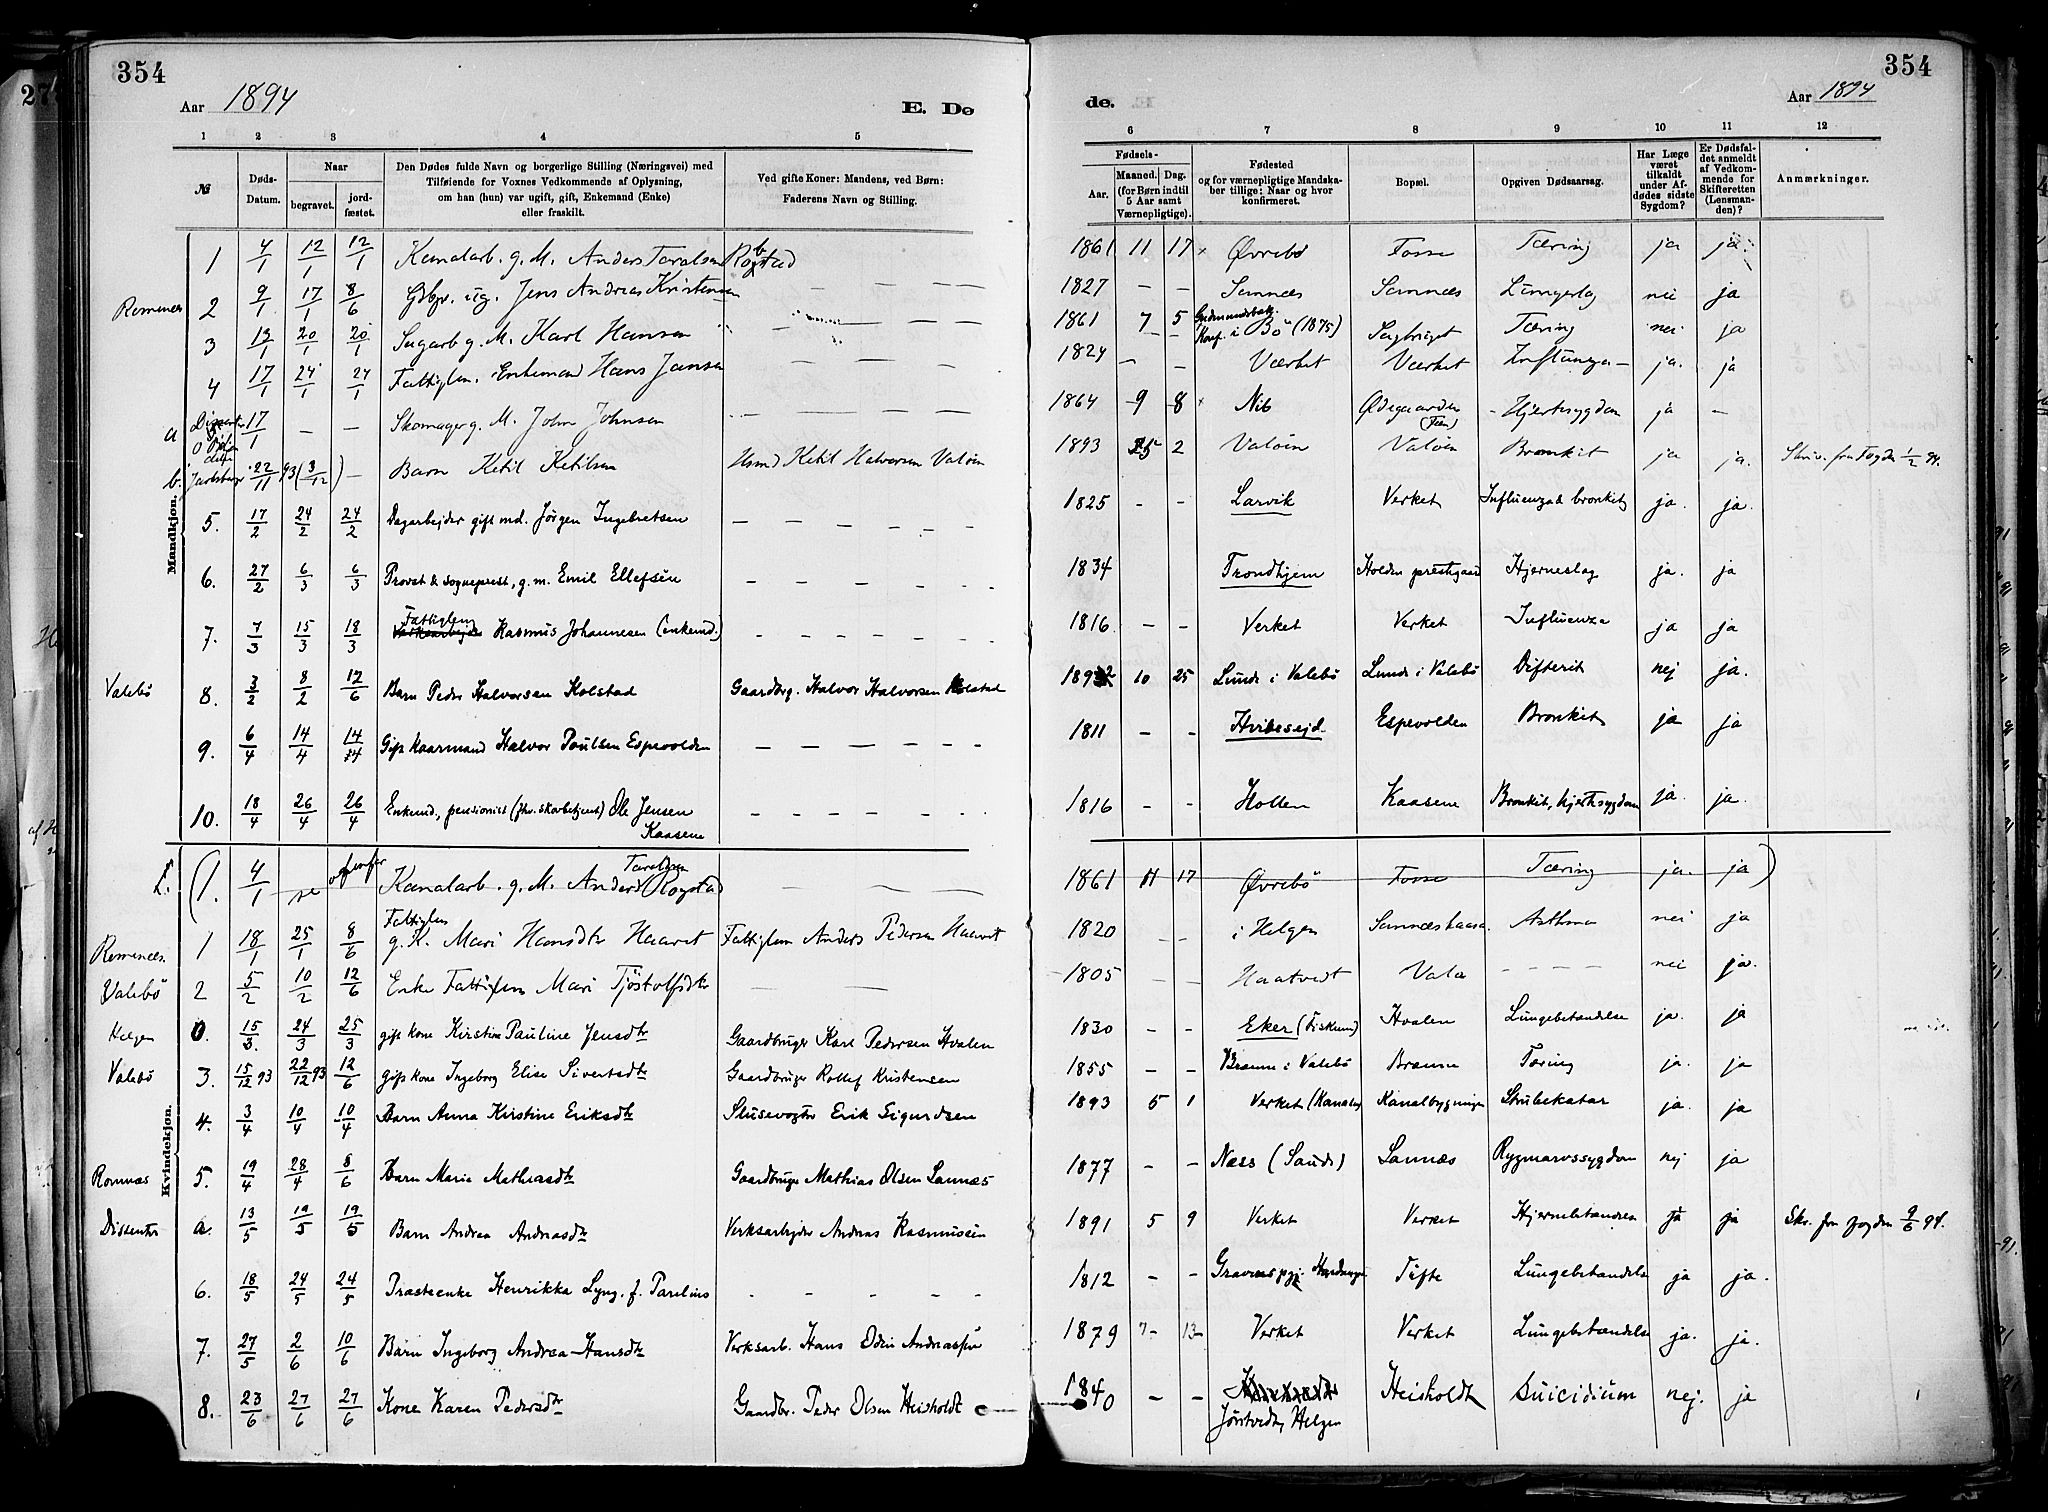 354
Aar 1894
E. Dø
1 2 3 4 5
№
Døds-Datum.
Naar
begravet.
jord-fæstet.
Den Dødes fulde Navn og borgerlige Stilling (Næringsvei) med
Tilføiende for Voxnes Vedkommende af Oplysning,
om han (hun) var ugift, gift, Enkemand (Enke)
eller fraskilt.
Ved gifte Koner: Mandens, ved Børn:
Faderens Navn og Stilling.
Mandkjøn.
1 4/1 12/1 12/1 Kanalarb. g. M. Anders Taralsen Rogstad
Romnæs 2 9/1 17/1 8/6 Gbr. ug. Jens Andreas Kristensen — — — —
3 13/1 20/1 20/1 Sagarb g. M. Karl Hansen — — —
4 17/1 24/1 24/1 Fattiglem. Enkemand Hans Jansen — — —
a Dissenter 17/1 — — Skomager g. M. John Johnsen — — — —
b. 22/11 93 (3/12) — Barn Ketil Ketilsen Husmd Ketil Halvorsen Valøin
5. 17/2 24/2 24/2 Dagarbejder gift md. Jørgen Ingebretsen — — — — — —
6. 27/2 6/3 6/3 Provst & sogneprest, g. m. Emil Ellefsen — — — — — —
Fattiglem
7. 7/3 15/3 18/3 Verksarbejder Rasmus Johannesen (enkemd.) — — — — — —
Valebø 8. 3/2 8/2 12/6 Barn Peder Halvorsen Kolstad Gaardbrg. Halvor Halvorsen Kolstad
9. 6/4 14/4 14/4 Gift kaarmand Halvor Paulsen Espevolden — — — — — —
10. 18/4 26/4 26/4 Enkemd, pensionist Ole Jensen
Kaasene — — — — — —
Kvindekjøn.
Taralsen
(1. 4/1 Kanalarb. g. M. Anders Rogstad — — —
Fattiglem
Romnæs. 1 18/1 25/1 8/6 g. K. Mari Hansdtr Haavet Fattiglem Anders Pedersen Haavet
Valebø 2 5/2 10/2 12/6 Enke Fattiglem Mari Tjøstolfsdtr — —
Helgen 0. 15/3. 24/3 25/3 gift kone Kirstine Pauline Jensdtr Gaardbruger Karl Pedersen Hvalen
Valebø 3. 15/12 93 22/12 93 12/6 gift kone Ingeborg Elise Sivertsdtr Gaardbruger Rollef Kristensen
4. 3/4 10/4 10/4 Barn Anna Kirstine Eriksdtr Slusevogter Erik Sigurdsen
Romnæs 5. 19/4 28/4 8/6 Barn Marie Mathiasdtr Gaardbruge Mathias Olsen Sannæs
Dissenter a. 13/5 19/5 19/5 Barn Andrea Andreasdtr Verksarbejder Andreas Rasmussen
6. 18/5 24/5 24/5 Præsteenke Henrikka Lyng. f. Parelius - - - - -
7. 27/5 2/6 10/6 Barn Ingeborg Andrea Hansdtr Verksarb. Hans Odin Andreassen
8. 23/6 27/6 27/6 Kone Karen Pedersdtr Gaardbr. Peder Olsen Heisholdt
354
Aar 1894
de.
6 7 8 9 10 11 12
Fødsels-
Aar.
Maaned. Dag.
(for Børn indtil
5 Aar samt
Værnepligtige).
Fødested
og for værnepligtige Mandska-
ber tillige: Naar og hvor
konfirmeret.
Bopæl.
Opgiven Dødsaarsag.
Har Læge
været
tilkaldt
under Af-
dødes sidste
Sygdom?
Er Dødsfal-
det anmeldt
af Vedkom-
mende for
Skifteretten
(Lensman-
den)?
Anmærkninger.
1861 11 17 Øvrebø Fosse Tæring ja ja
1827 — — Sannæs Sannæs Lungeslag nei ja
1861 7 5 Konf. i Bø (1875) Sagbruget Tæring nei ja
1824 — — Værket Værket Influenza — ja. ja
1864 9 8 Ødegaarden (Fæn) Hjertesygdom ja —
1893 2 Valøin Valøin Bronkit ja ja. Skriv. fra Fogden 1/2 94.
1825 - - Larvik Verket Influenza & bronkit ja. ja.
1834 - - Trondhjem Holden prestegaard Hjerneslag ja. ja
1816 - - Verket Verket Influenza ja ja
1892 10 25 Lunde i Valebø Lunde i Valebø Difterit nej ja.
1811 - - Hvidesejd. Espevolden Bronkit ja ja
1816 - - Hollen Kaasene Bronkit, hjertesygdom ja. ja.
1861 11 17 Øvrebø Fosse Tæring ja. ja)
1820 - - i Helgen Sannæshaasa. Asthma nei ja
1805 - - Haatvedt Vala - - - - nei ja.
1830 - - Eker (Fiskum) Hvalen Lungebetændelse ja. ja
1855 - - Braune i Valebø Braune Tæring ja. ja
1893 5 1 Verket (Kanalbyg Kanalbygningen Strubekatar ja. ja
1877 - - Næss (Saude) Sannæs Rygmarvssygdom nej ja
1891 5 9 Verket Verket Hjernebetændelse ja ja Skr. fra fogden 9/6 94.
1812 - - Gravens pgj. Hardanger Tufte Lungebetændelse ja ja.
1879 7 13 Verket Verket Lungebetændelse ja. ja.
1840 - - Jønvedt, Helgen Heisholdt Suicidium nej. ja